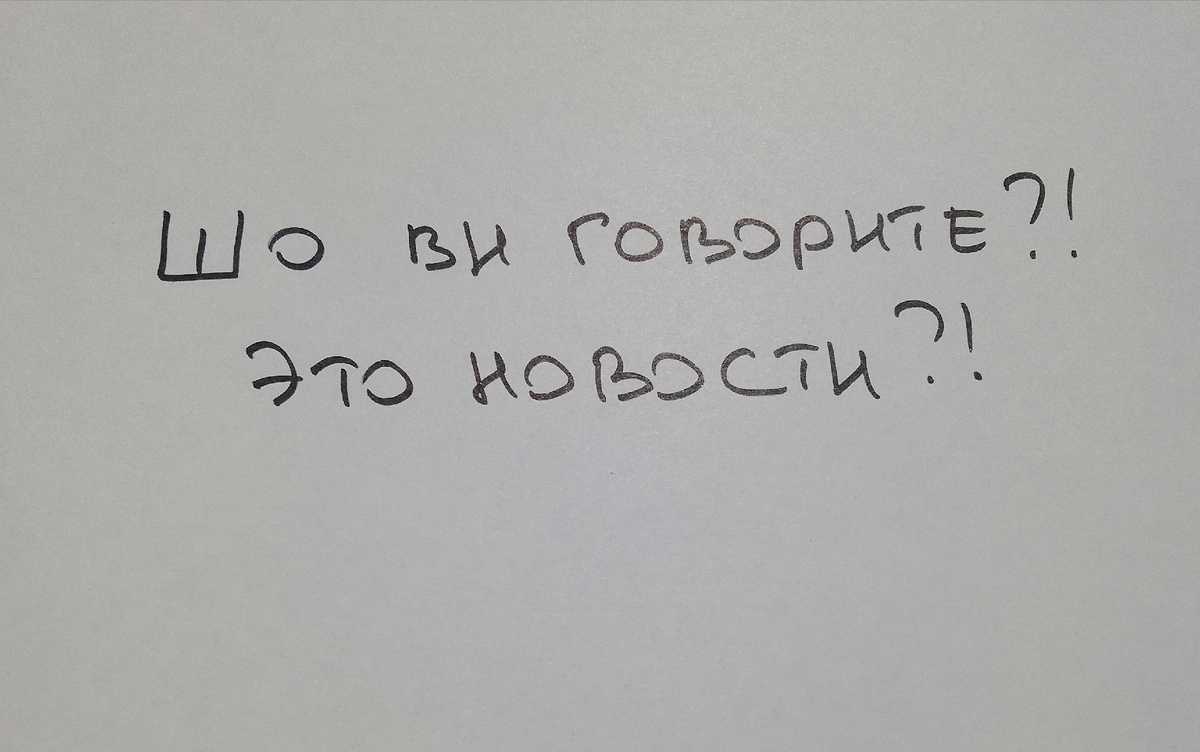 ШО ВИ ГОВОРИТЕ?!
ЭТО НОВОСТИ?!